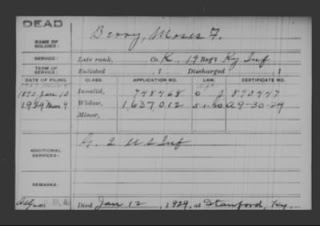 DEAD
NAME OF SOLDIER: Berry, Moses F.
SERVICE: Late rank, Co. K, 19 Reg't Ky Inf
TERM OF SERVICE: Enlisted , 1 Discharged , 1
DATE OF FILING. CLASS. APPLICATION NO. LAW. CERTIFICATE NO.
Invalid, 748768 870447
1929 Widow, 1,637,012 A9-30-29
Minor,
ADDITIONAL SERVICES: G. 2 U.S Inf
REMARKS:
Died Jan 12, 1929, at Stanford, Ky.